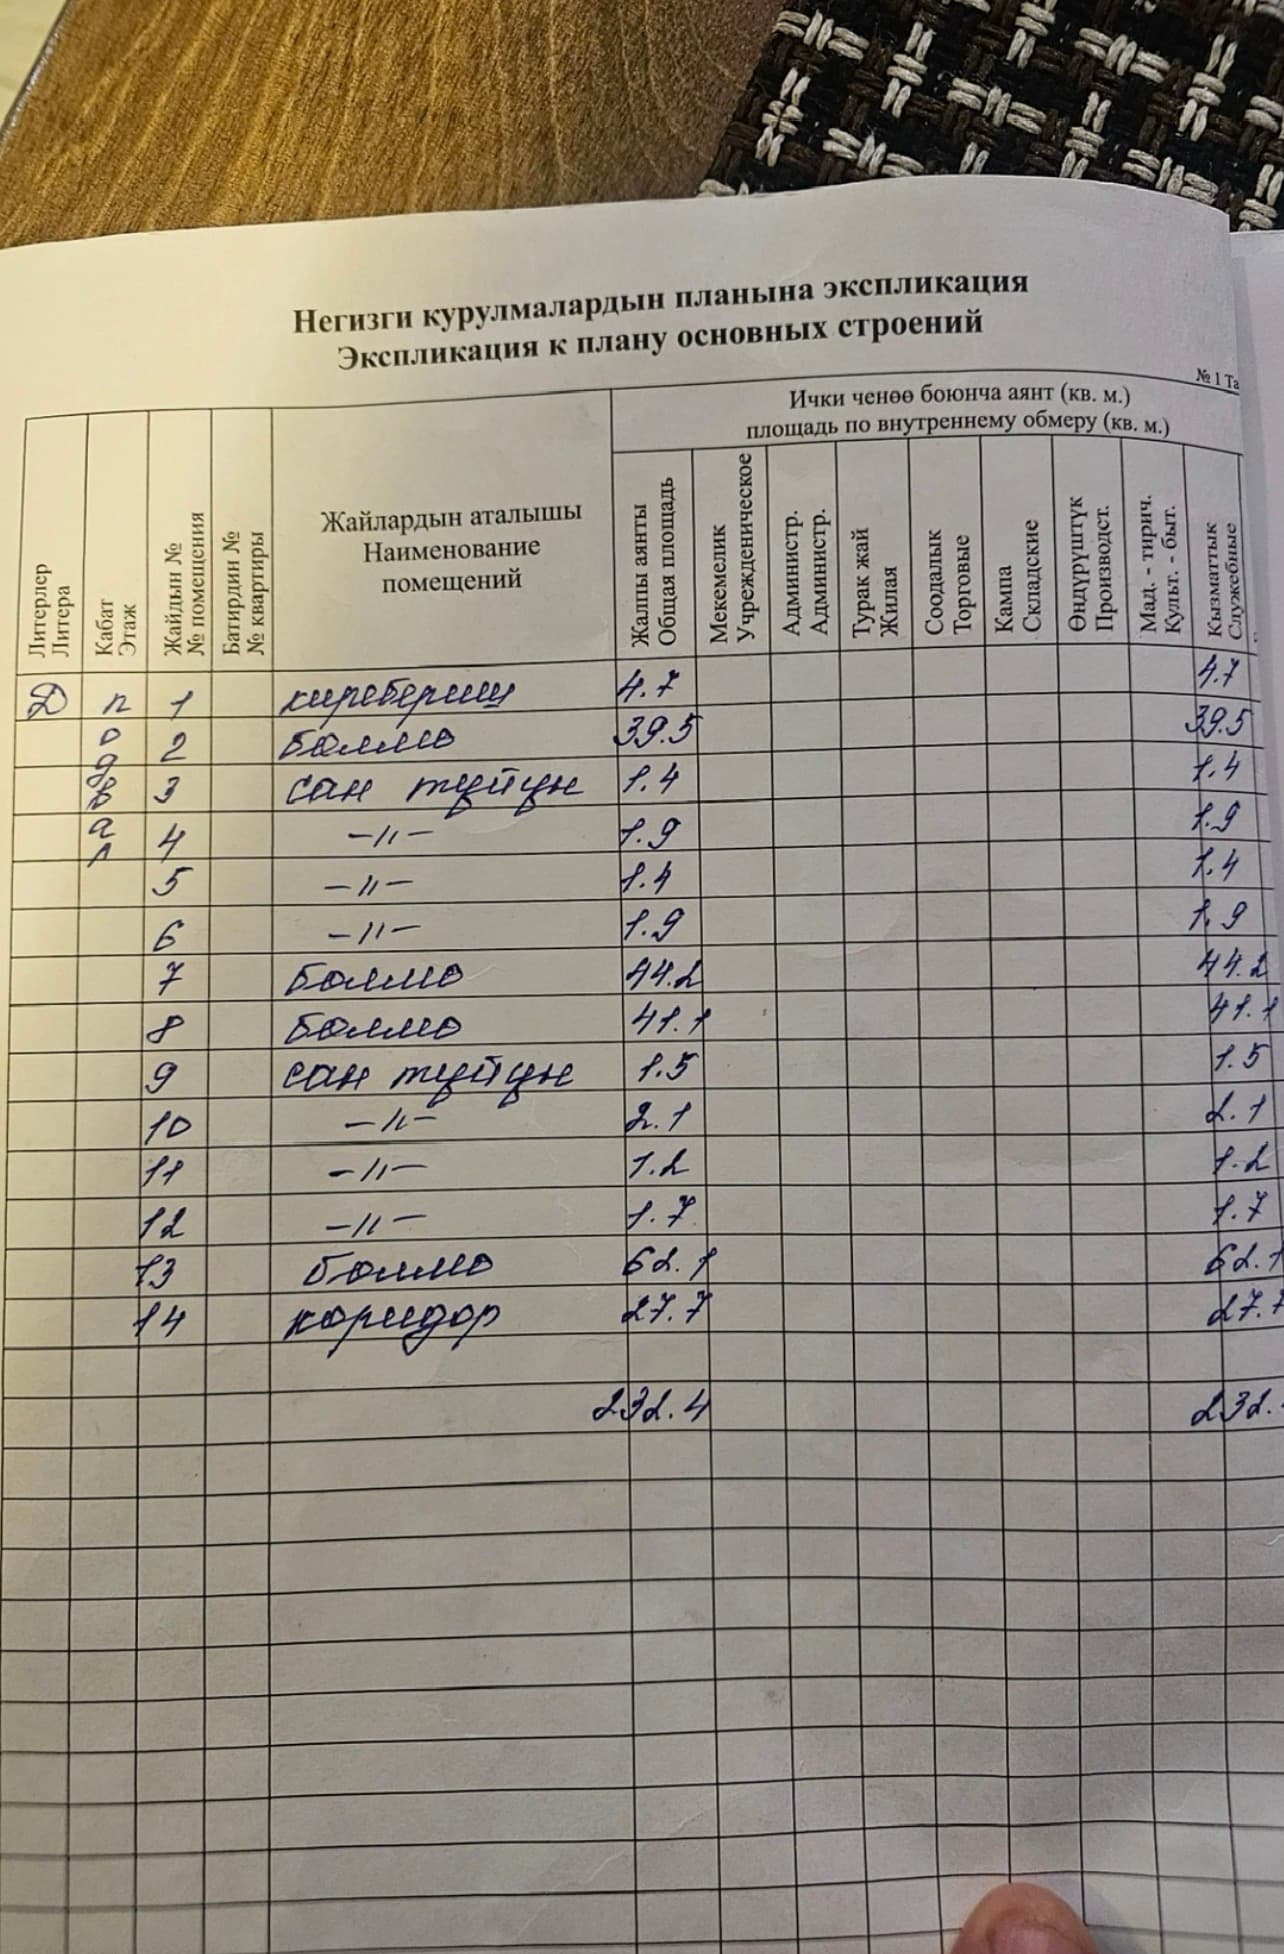 Негизги курулмалардын планына экспликация
Экспликация к плану основных строений
№ 1 Та
Ички ченөө боюнча аянт (кв. м.)
площадь по внутреннему обмеру (кв. м.)
Литерлер
Литера
Кабат
Этаж
Жайдын №
№ помещения
Батирдин №
№ квартиры
Жайлардын аталышы
Наименование
помещений
Жалпы аянты
Общая площадь
Мекемелик
Учрежденическое
Администр.
Администр.
Турак жай
Жилая
Соодалык
Торговые
Кампа
Складские
Өндүрүштүк
Производст.
Мад. - тирич.
Культ. - быт.
Кызматтык
Служебные
Д подвал 1 киребериш 4.7 4.7
2 бөлмө 39.5 39.5
3 сан түйүн 1.4 1.4
4 -//- 1.9 1.9
5 -//- 1.4 1.4
6 -//- 1.9 1.9
7 бөлмө 44.2 44.2
8 бөлмө 41.1 41.1
9 сан түйүн 1.5 1.5
10 -//- 2.1 2.1
11 -//- 1.2 1.2
12 -//- 1.7 1.7
13 бөлмө 62.1 62.1
14 коридор 27.7 27.7
232.4 232.